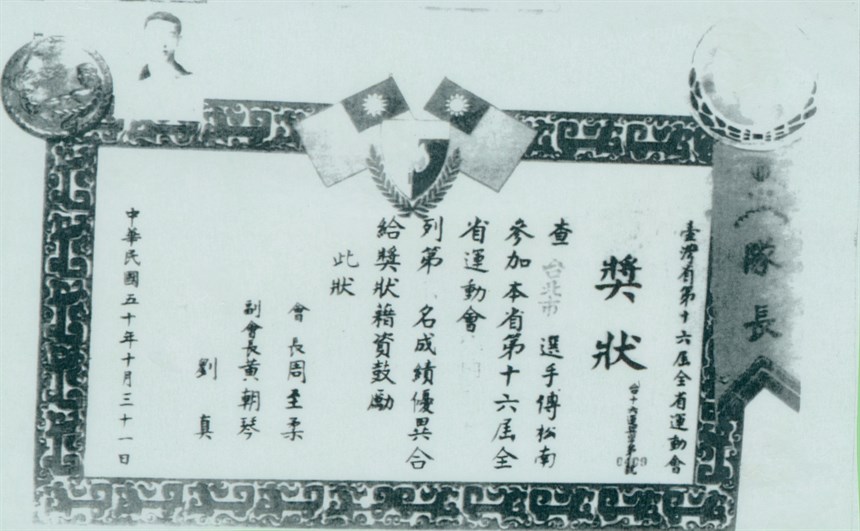 臺灣省第十六屆全省運動會
獎狀
台十六運獎字第 號
0409
查 台北市 選手傅松南
參加本省第十六屆全
省運動會
列第 名成績優異合
給獎狀藉資鼓勵
此狀
會長周至柔
副會長黃朝琴
劉真
中華民國五十年十月三十一日
隊長